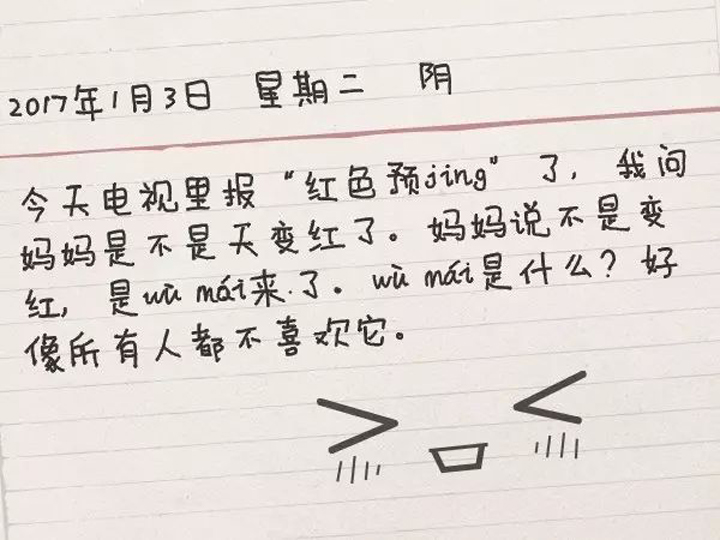 2017年1月3日 星期二 阴
今天电视里报“红色预jing”了，我问
妈妈是不是天变红了。妈妈说不是变
红，是wù mái来了。wù mái是什么？好
像所有人都不喜欢它。